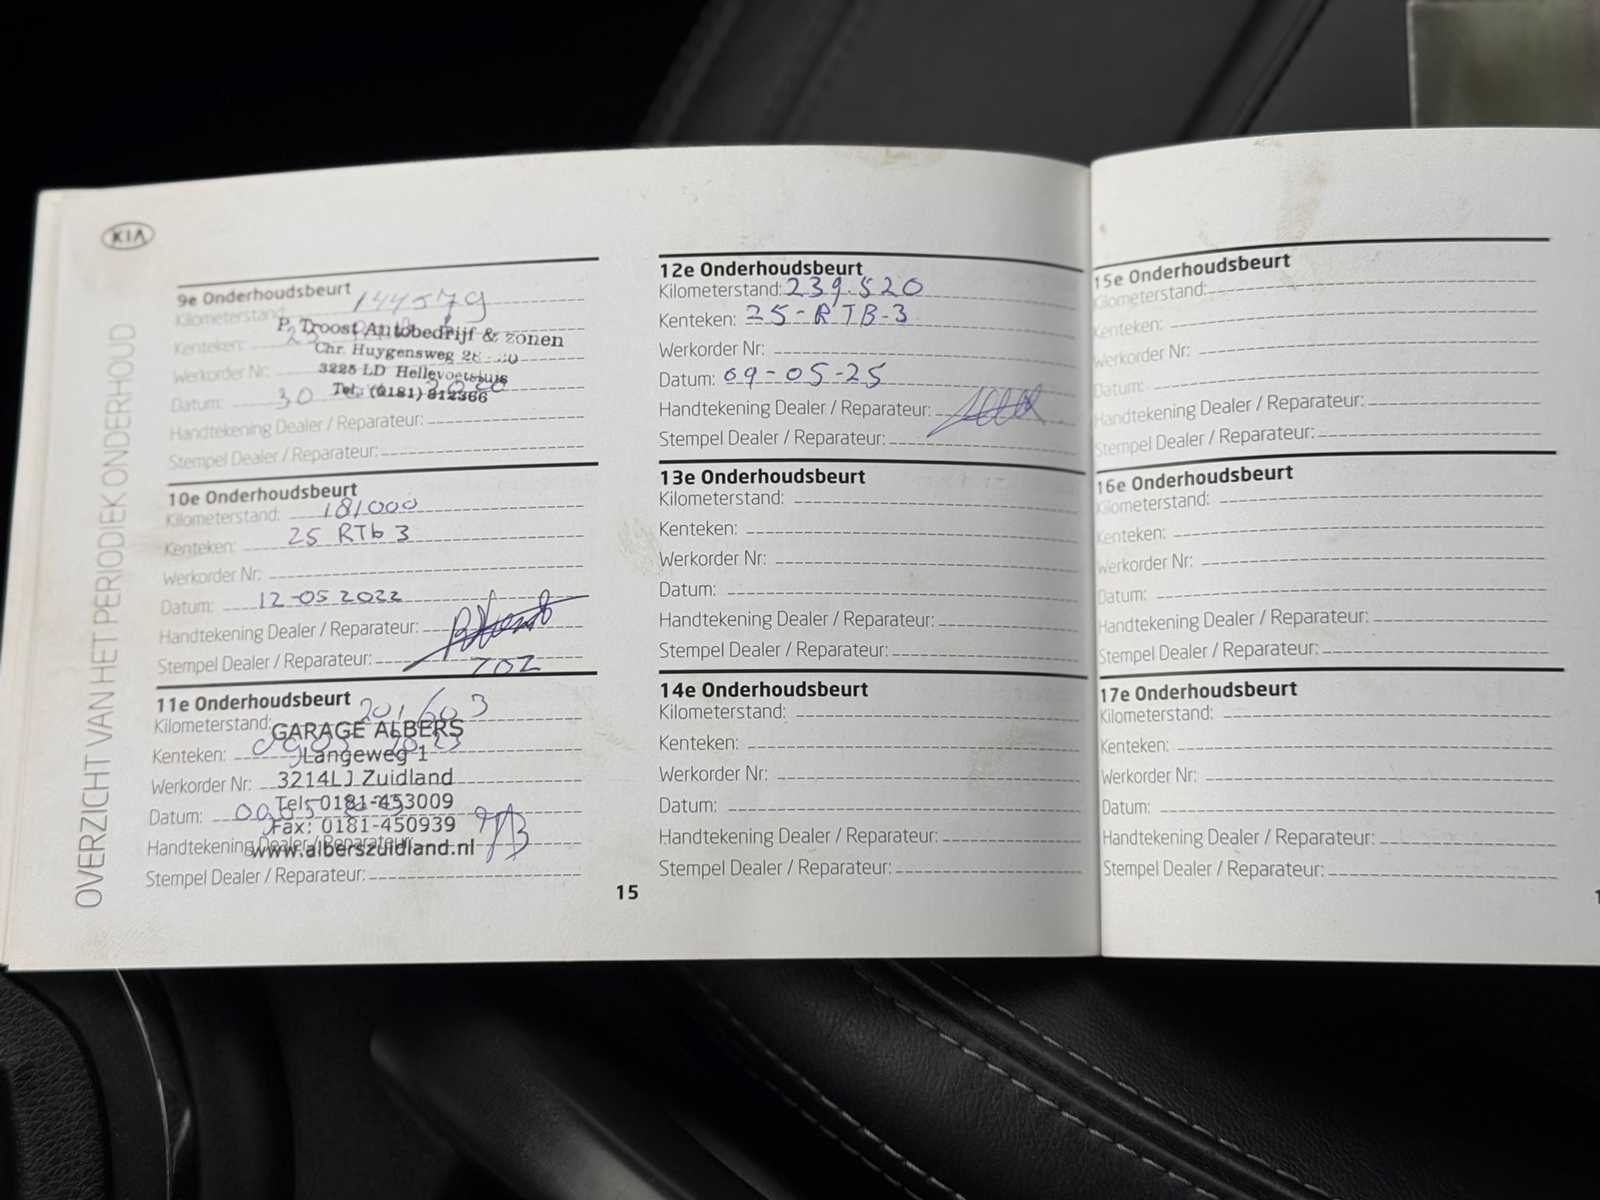 KIA
OVERZICHT VAN HET PERIODIEK ONDERHOUD
9e Onderhoudsbeurt
Kilometerstand: 144579
P. Troost Autobedrijf & zonen
Kenteken:
Chr. Huygensweg 28
Werkorder Nr:
3225 LD Hellevoetsluis
Tel. (0181) 312366
Datum: 30
Handtekening Dealer / Reparateur:
Stempel Dealer / Reparateur:
10e Onderhoudsbeurt
Kilometerstand: 181000
Kenteken: 25 RTb 3
Werkorder Nr:
Datum: 12-05 2022
Handtekening Dealer / Reparateur:
Stempel Dealer / Reparateur:
11e Onderhoudsbeurt
Kilometerstand: 201603
GARAGE ALBERS
Kenteken:
Langeweg 1
Werkorder Nr: 3214LJ Zuidland
Tel: 0181-453009
Datum:
Fax: 0181-450939
Handtekening Dealer / Reparateur:
www.alberszuidland.nl
Stempel Dealer / Reparateur:
15
12e Onderhoudsbeurt
Kilometerstand: 239.520
Kenteken: 25-RTB-3
Werkorder Nr:
Datum: 09-05-25
Handtekening Dealer / Reparateur:
Stempel Dealer / Reparateur:
13e Onderhoudsbeurt
Kilometerstand:
Kenteken:
Werkorder Nr:
Datum:
Handtekening Dealer / Reparateur:
Stempel Dealer / Reparateur:
14e Onderhoudsbeurt
Kilometerstand:
Kenteken:
Werkorder Nr:
Datum:
Handtekening Dealer / Reparateur:
Stempel Dealer / Reparateur:
15e Onderhoudsbeurt
Kilometerstand:
Kenteken:
Werkorder Nr:
Datum:
Handtekening Dealer / Reparateur:
Stempel Dealer / Reparateur:
16e Onderhoudsbeurt
Kilometerstand:
Kenteken:
Werkorder Nr:
Datum:
Handtekening Dealer / Reparateur:
Stempel Dealer / Reparateur:
17e Onderhoudsbeurt
Kilometerstand:
Kenteken:
Werkorder Nr:
Datum:
Handtekening Dealer / Reparateur:
Stempel Dealer / Reparateur: